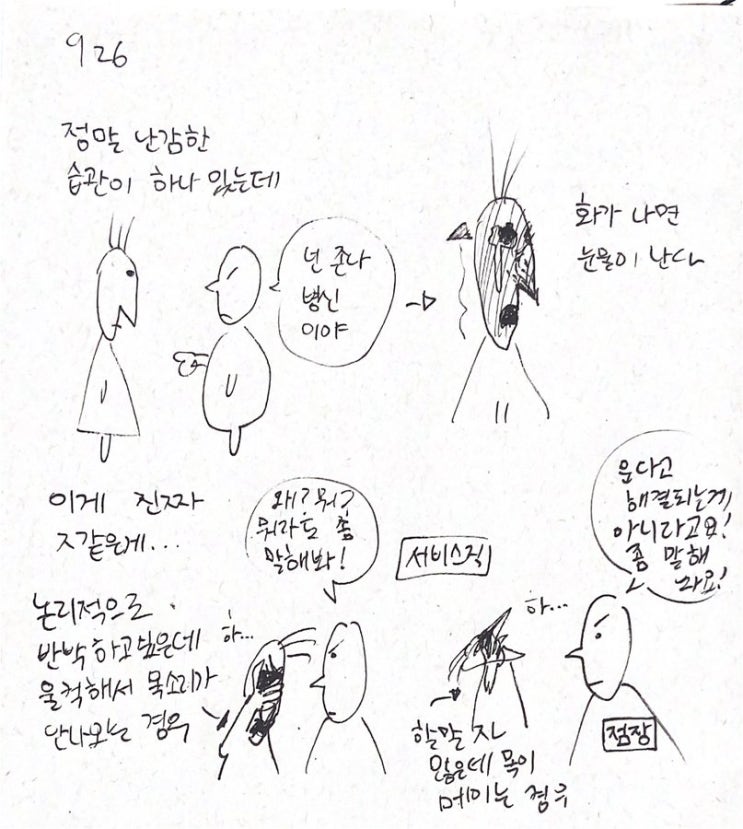 926
정말 난감한
습관이 하나 있는데
넌 존나
병신
이야
화가 나면
눈물이 난다
이게 진짜
ㅈ같은게...
왜? 뭐?
뭐라도 좀
말해봐!
논리적으로
반박하고싶은데
울컥해서 목소리가
안나오는 경우
하...
서비스직
운다고
해결되는게
아니라고요!
좀 말해
하...
할말 자
많은데 목이
메이는 경우
점장